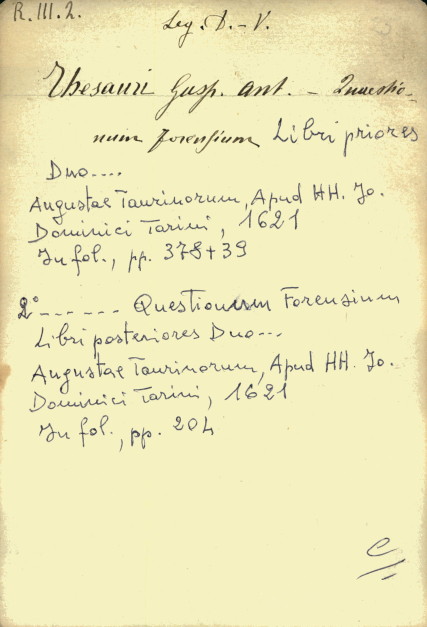 R. III. 2.
Leg. D. - V.
Thesauri Gasp. Ant. - Quaestio-
num forensium Libri priores
Duo....
Augustae Taurinorum, Apud HH. Jo.
Dominici Tarini, 1621
In fol., pp. 378+39
2° - - - - - - Questionum Forensium
Libri posteriores Duo...
Augustae Taurinorum, Apud HH. Jo.
Dominici Tarini, 1621
In fol., pp. 204
C